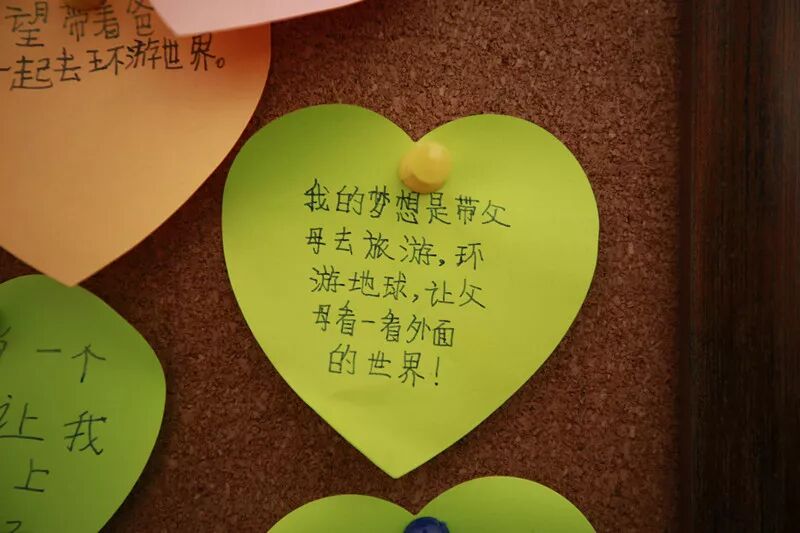 望带着爸
一起去环游世界。
我的梦想是带父
母去旅游,环
游地球,让父
母看一看外面
的世界!
一个
让我
上